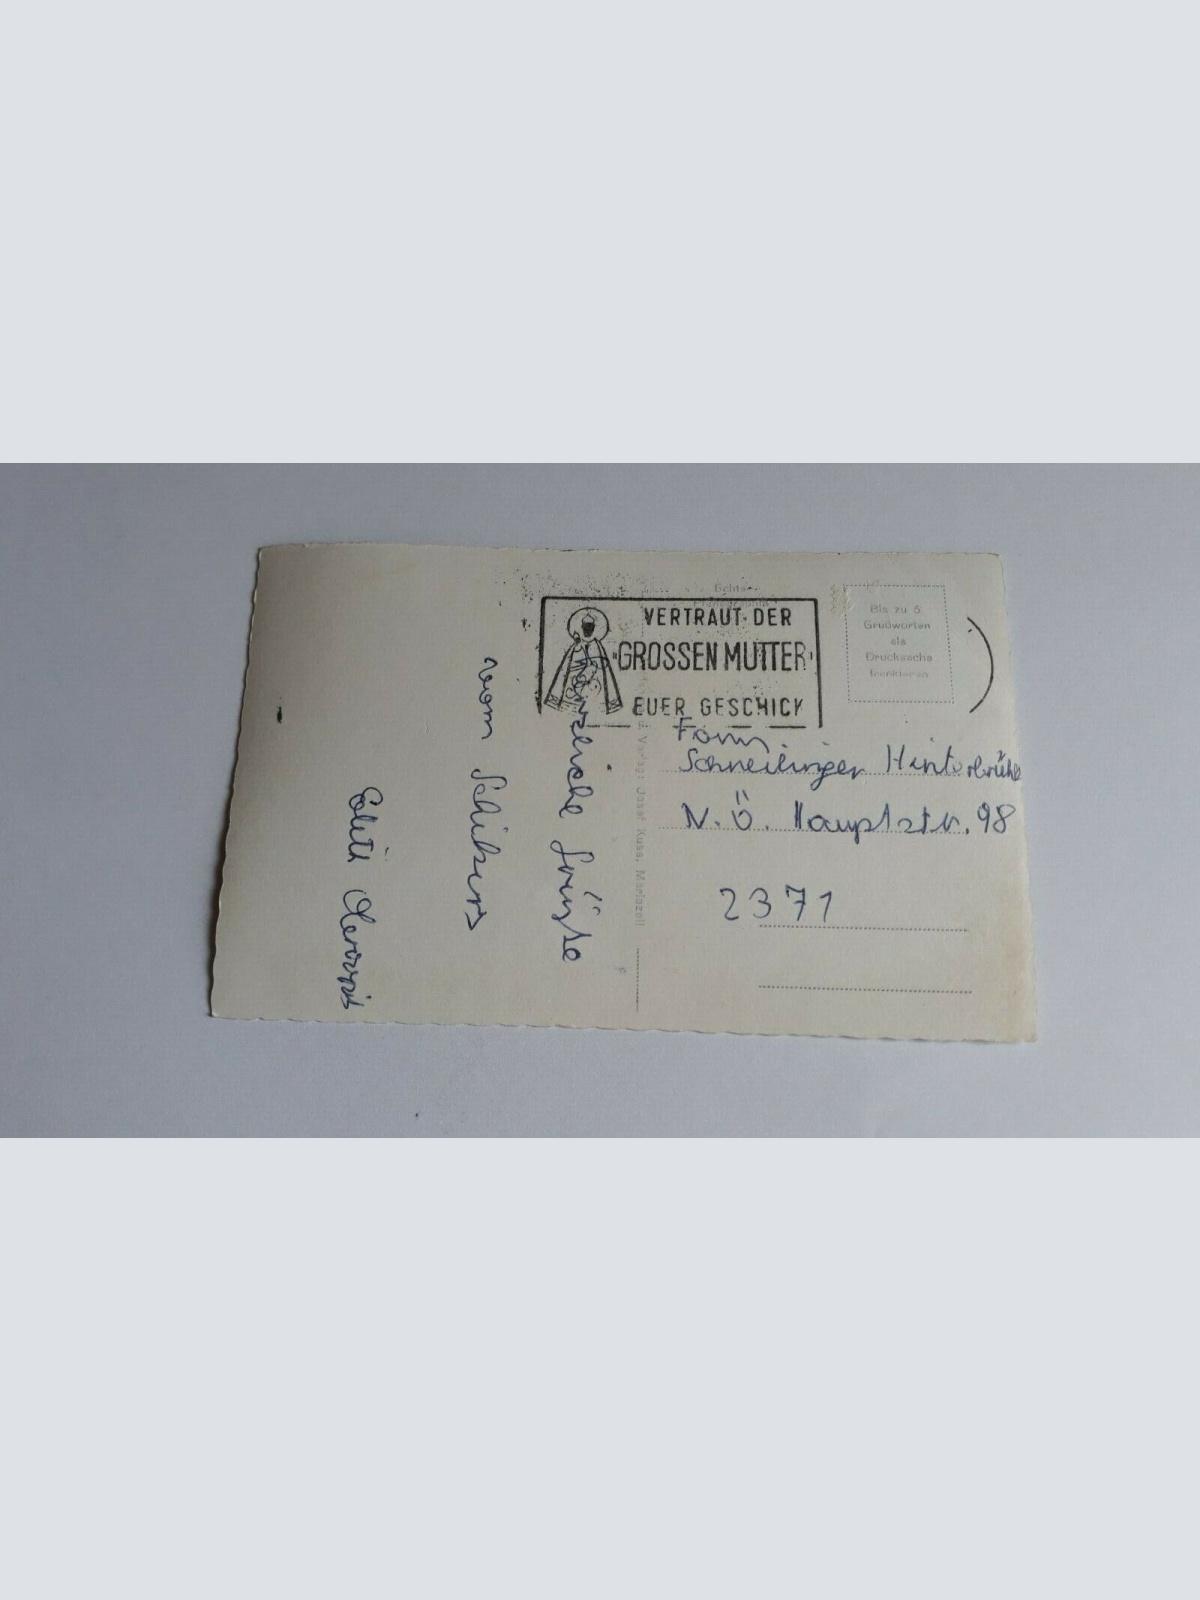 Echte
VERTRAUT DER
"GROSSEN MUTTER"
EUER GESCHICK
Bis zu 5
Grußworten
als
Drucksache
frankieren
Fam.
Schneilinger Hinterbrühl
N.Ö. Hauptstr. 98
2371
Verlag: Josef Kuss, Mariazell
Herzliche Grüße
vom Schikurs
Edith